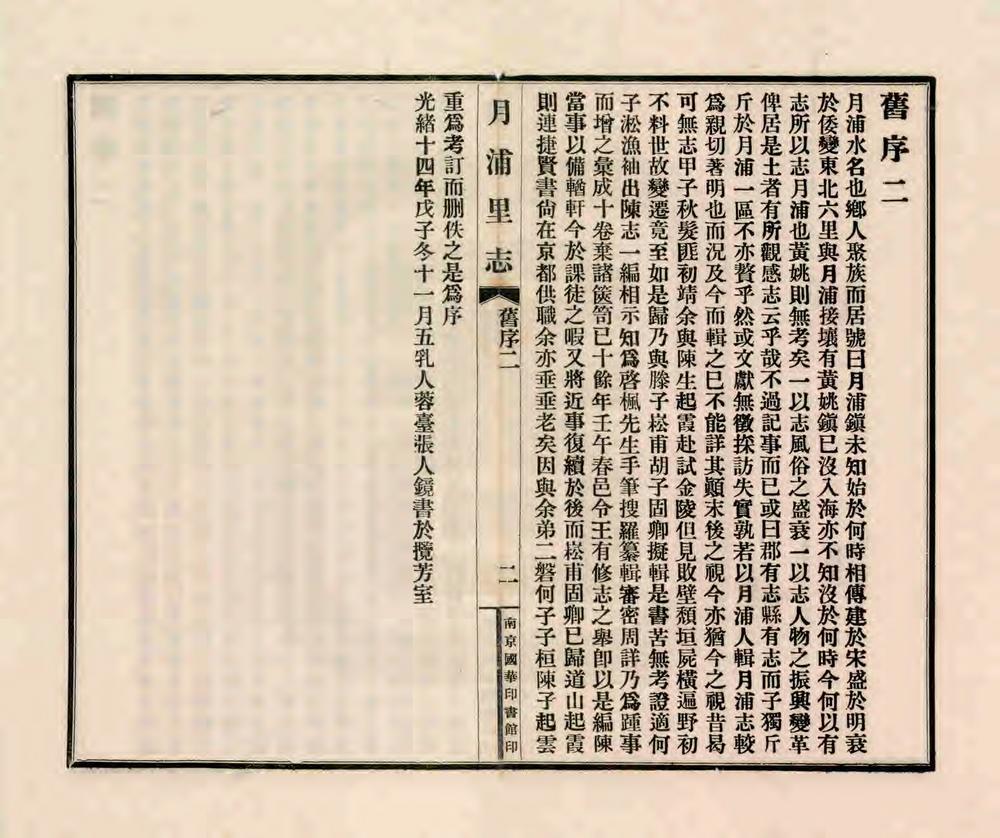 舊序二
月浦水名也鄉人聚族而居號曰月浦鎮未知始於何時相傳建於宋盛於明衰
於倭變東北六里與月浦接壤有黃姚鎮已沒入海亦不知沒於何時今何以有
志所以志月浦也黃姚則無考矣一以志風俗之盛衰一以志人物之振興變革
俾居是土者有所觀感志云乎哉不過記事而已或曰郡有志縣有志而子獨斤
斤於月浦一區不亦贅乎然或文獻無徵採訪失實孰若以月浦人輯月浦志較
爲親切著明也而況及今而輯之已不能詳其顚末後之視今亦猶今之視昔曷
可無志甲子秋髮匪初靖余與陳生起霞赴試金陵但見敗壁頹垣屍橫遍野初
不料世故變遷竟至如是歸乃與滕子崧甫胡子固卿擬輯是書苦無考證適何
子淞漁袖出陳志一編相示知爲啓楓先生手筆搜羅纂輯審密周詳乃爲踵事
而增之彙成十卷棄諸篋笥已十餘年壬午春邑令王有修志之舉卽以是編陳
當事以備輶軒今於課徒之暇又將近事復續於後而崧甫固卿已歸道山起霞
則連捷賢書尙在京都供職余亦垂垂老矣因與余弟二磐何子子桓陳子起雲
月浦里志
舊序二
二
南京國華印書館印
重爲考訂而删佚之是爲序
光緒十四年戊子冬十一月五乳人蓉臺張人鏡書於攬芳室